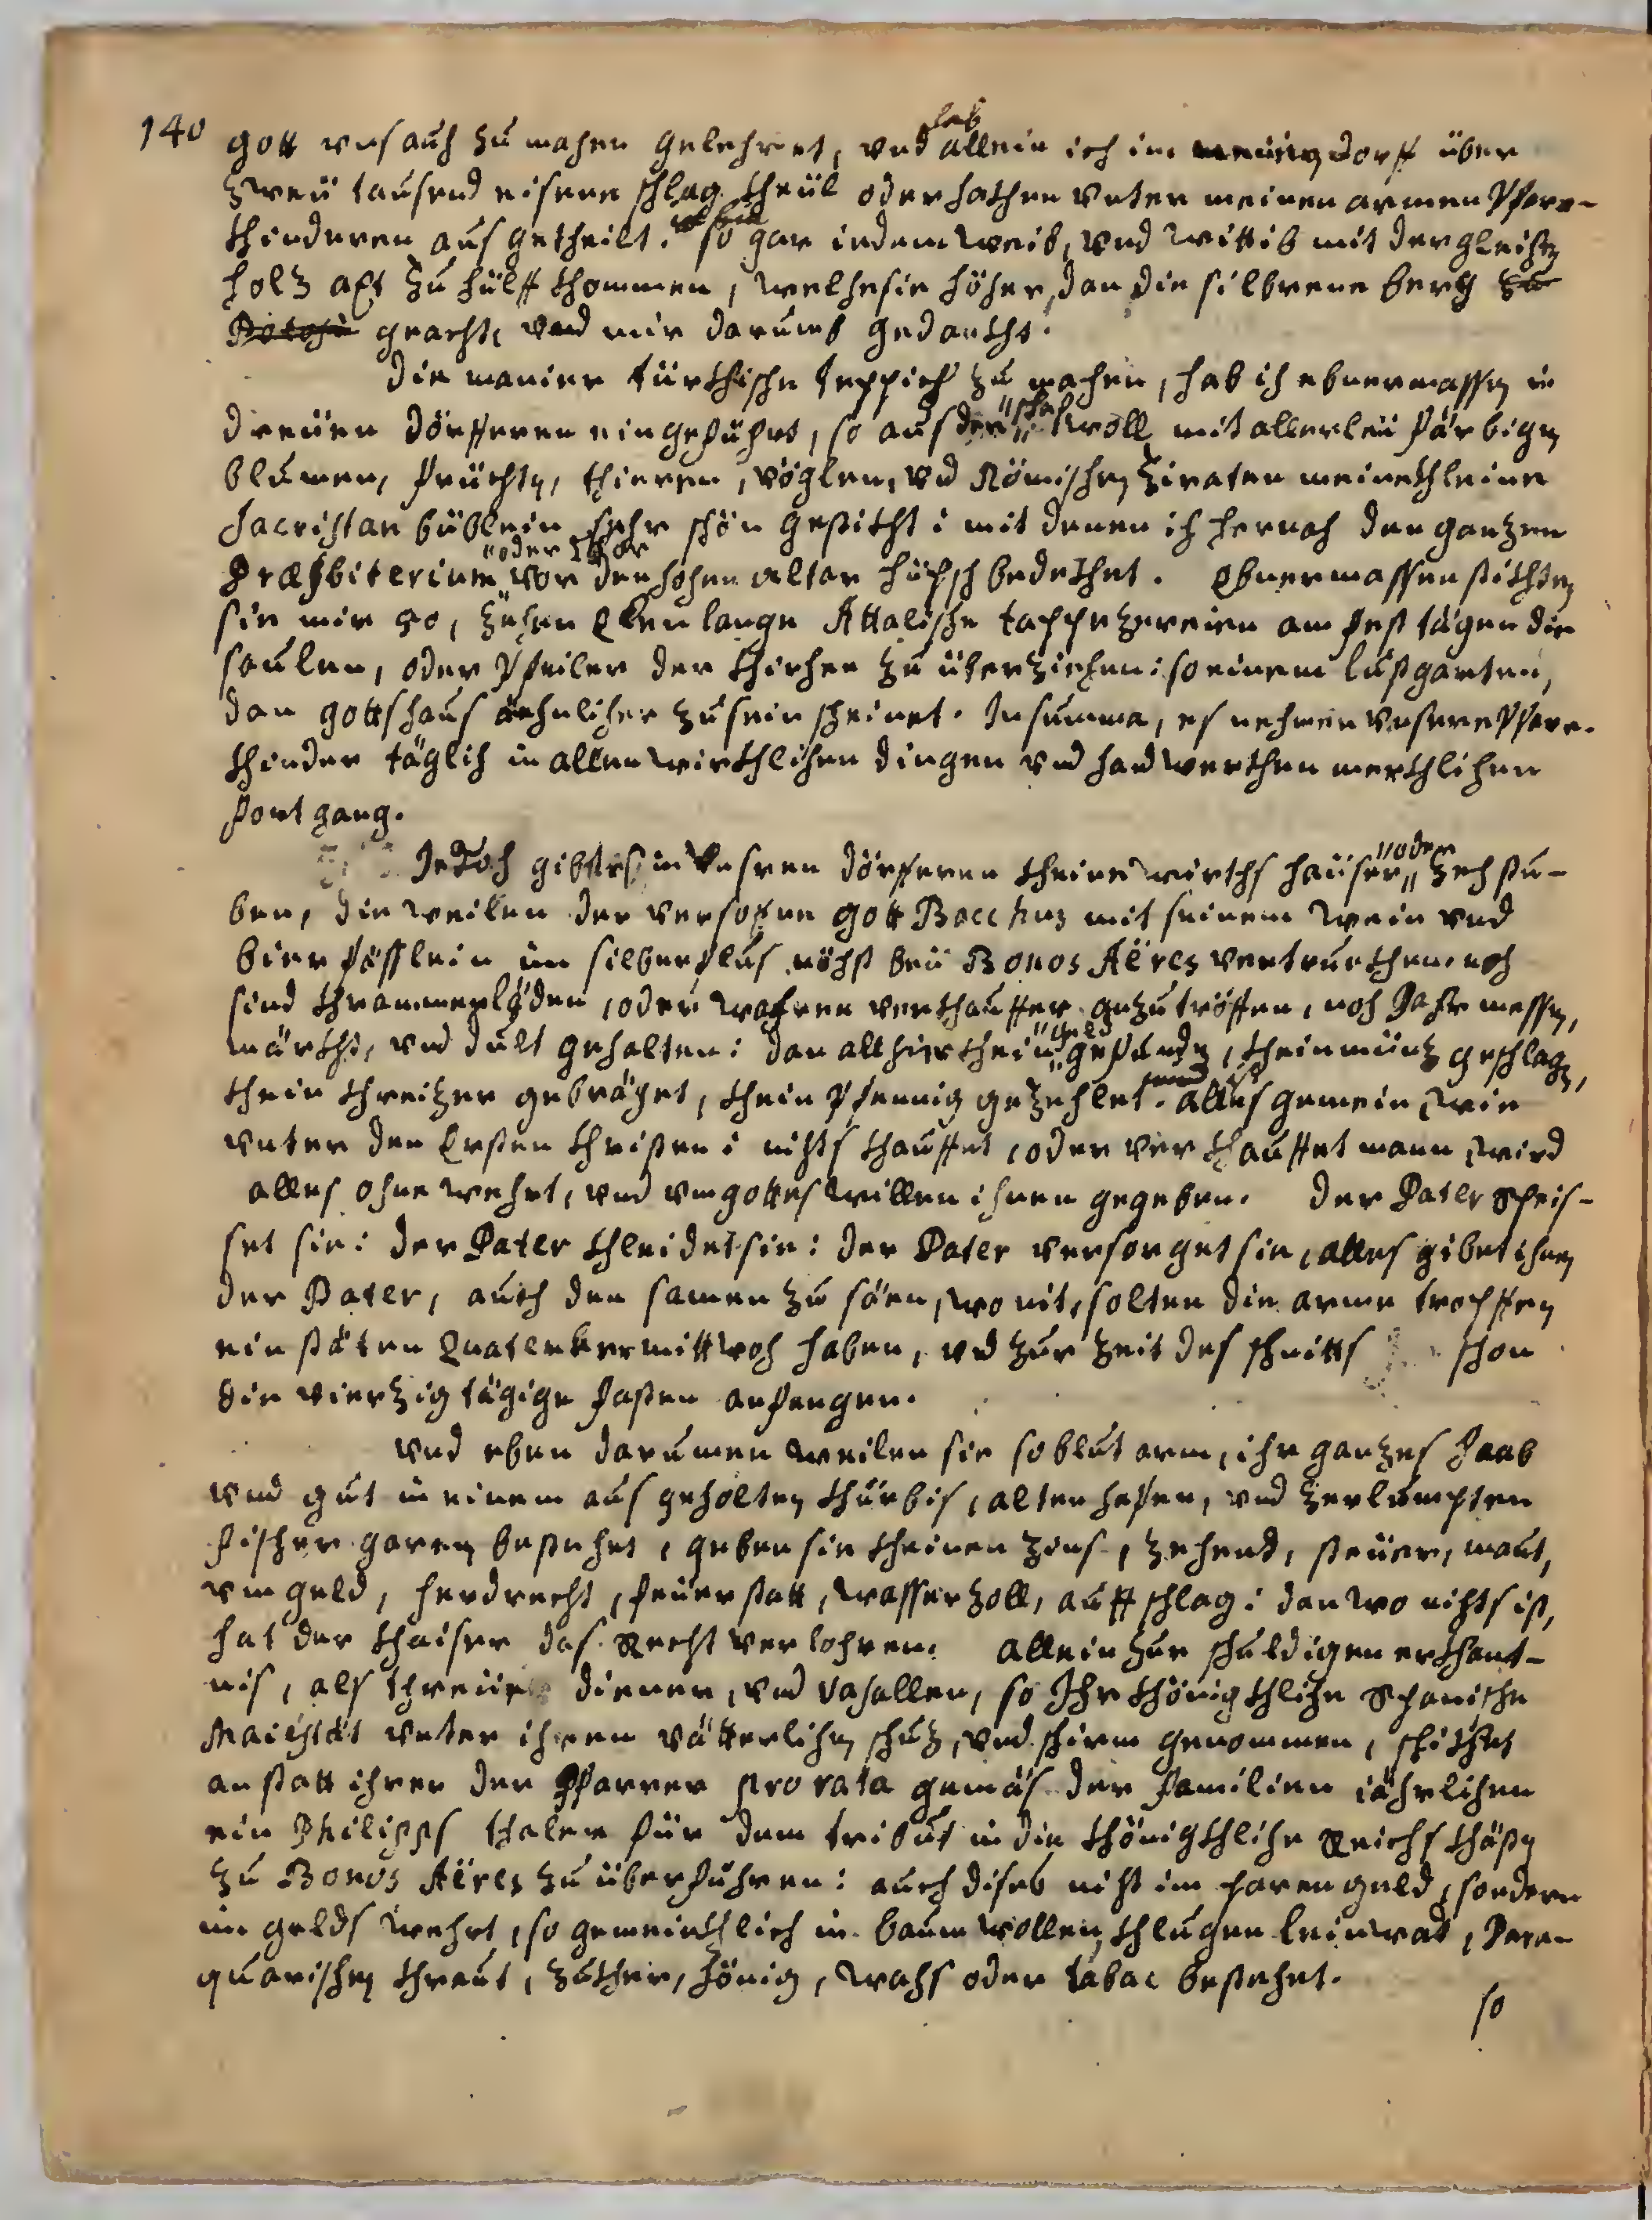 140
gott uns auch zu machen gelehret, und hab allein ich im meinig dorff über
zweü tausend eisene schlag theül oder hathen unter meinen armen Pfare-
khinderen aus getheilt. so gar iedem weib, und wittib mit dergleichen
holz axt zu hülff khommen, welche sie höher, dan die silberene berg zu
Potosi geacht, und mir darumb gedankht.
die manier türkhische teppich zu machen, hab ich ebnermassen in
dreüen dörfferen eingeführt, so aus der „schaf„ woll mit allerleü färbigen
blumen, früchten, thieren, vöglen, und Römischen Ziraten meine khleine
Sacristan büblein sehr schön gestikht: mit denen ich hernach den ganzen
Præsbiterium „oder Chor„ vor den hohen altar hüpsch bedekhet. Ebnermassen stikhten
sie mir 90, zehen Ellen lange Attalische tappezereien am fest tägen die
saulen, oder Pfeiler der khirchen zu überziehen: so einem lustgarten,
dan gottshaus ähnlicher zu sein scheinet. In summa, es nehmen unsere Pfare-
khinder täglich in allen wirthlichen dingen und handwerkhen merkhlichen
fortgang.
Jedoch gibt es in unsren dörfferen kheine wirths haüser „oder„ zech stu-
ben, die weilen der versoffene gott Bacchus mit seinem wein und
bier fässlein im silberflus nöchst beü Bonos Aëres vertrunkhen. noch
sind khrammerläden, oder wahren verkhauffer anzutröffen, noch Jahr messen,
märkht, und dult gehalten: dan allhier khein „geld„ gefunden, khein münz geschlagen,
khein khreitzer gebräget, khein Pfennig gezehlet. alles ist gemein, wie
unter den Ersten khristen: nichts khauffet, oder verkhauffet mann, wird
alles ohne wehrt, und um gottes willen ihnen gegeben. der Pater speis-
set sie: der Pater khleidet sie: der Pater versorget sie, alles gibet ihnen
der Pater, auch den samen zu säen, wo nit, solten die arme tropffen
ein stäten Quatember mittwoch haben, und zur zeit des schnitts schon
die vierzig tägige fasten anfangen.
und eben darumen weilen sie so blut arm, ihr ganzes Haab
und gut in einem aus geholten khürbis, alten hafen, und zerlumpten
fischer garen bestehet, geben sie kheinen zins, zehend, steüer, maut,
umgeld, herdrecht, feüerstatt, wasserzoll, auffschlag: dan wo nichts ist,
hat der khaiser das Recht verlohren. allein zur schuldigen erkhant-
nis, als threüe diener, und vasallen, so Ihr khönigkhliche Spanische
Maiestät unter ihren vätterlichen schuz, und schirm genommen, schikhet
anstatt ihrer der Pfarrer pro rata gemäs der familien iährlichen
ein Philipps thaler für dem tribut in die khönigkhliche Reichs khästen
zu Bonos Aëres zu überführen: auch dises nicht im paren geld, sondern
im gelds wehrt, so gemeinkhlich in baumwollen khlugen leinwat, Para-
quarischen khraut, zukher, hönig, wachs oder tabac bestehet.
so